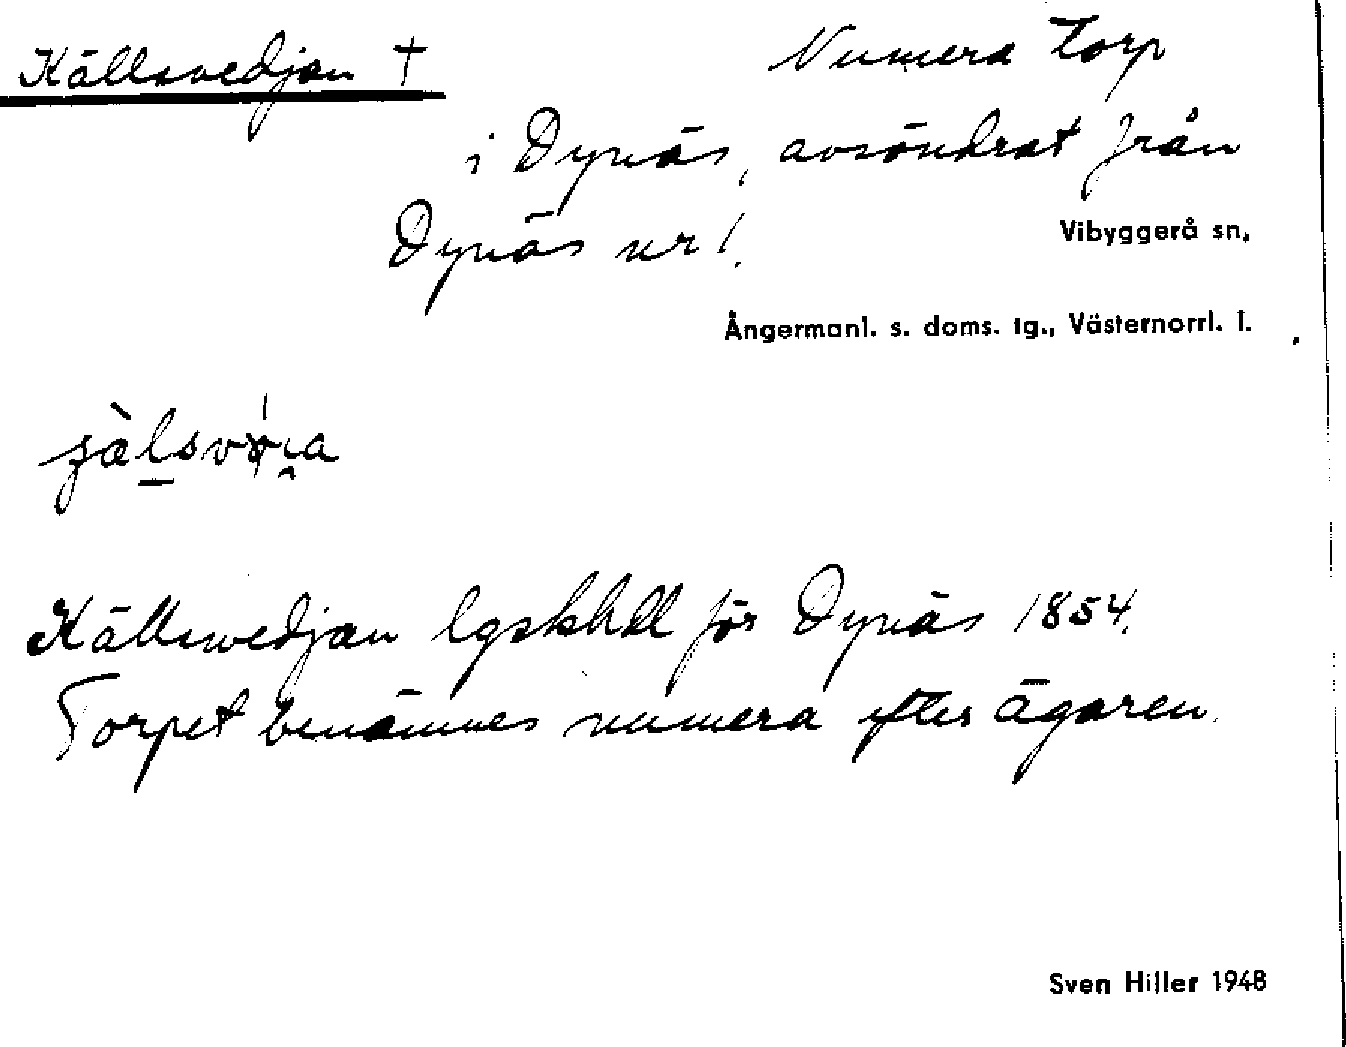 Källsvedjan † Numera torp
i Dynäs, avsöndrat från
Dynäs nr 1.
Vibyggerå sn.
Ångermanl. s. doms. tg., Västernorrl. l.
Källswedjan lgskhdl för Dynäs 1854.
Torpet benämnes numera efter ägaren.
Sven Hiller 1948